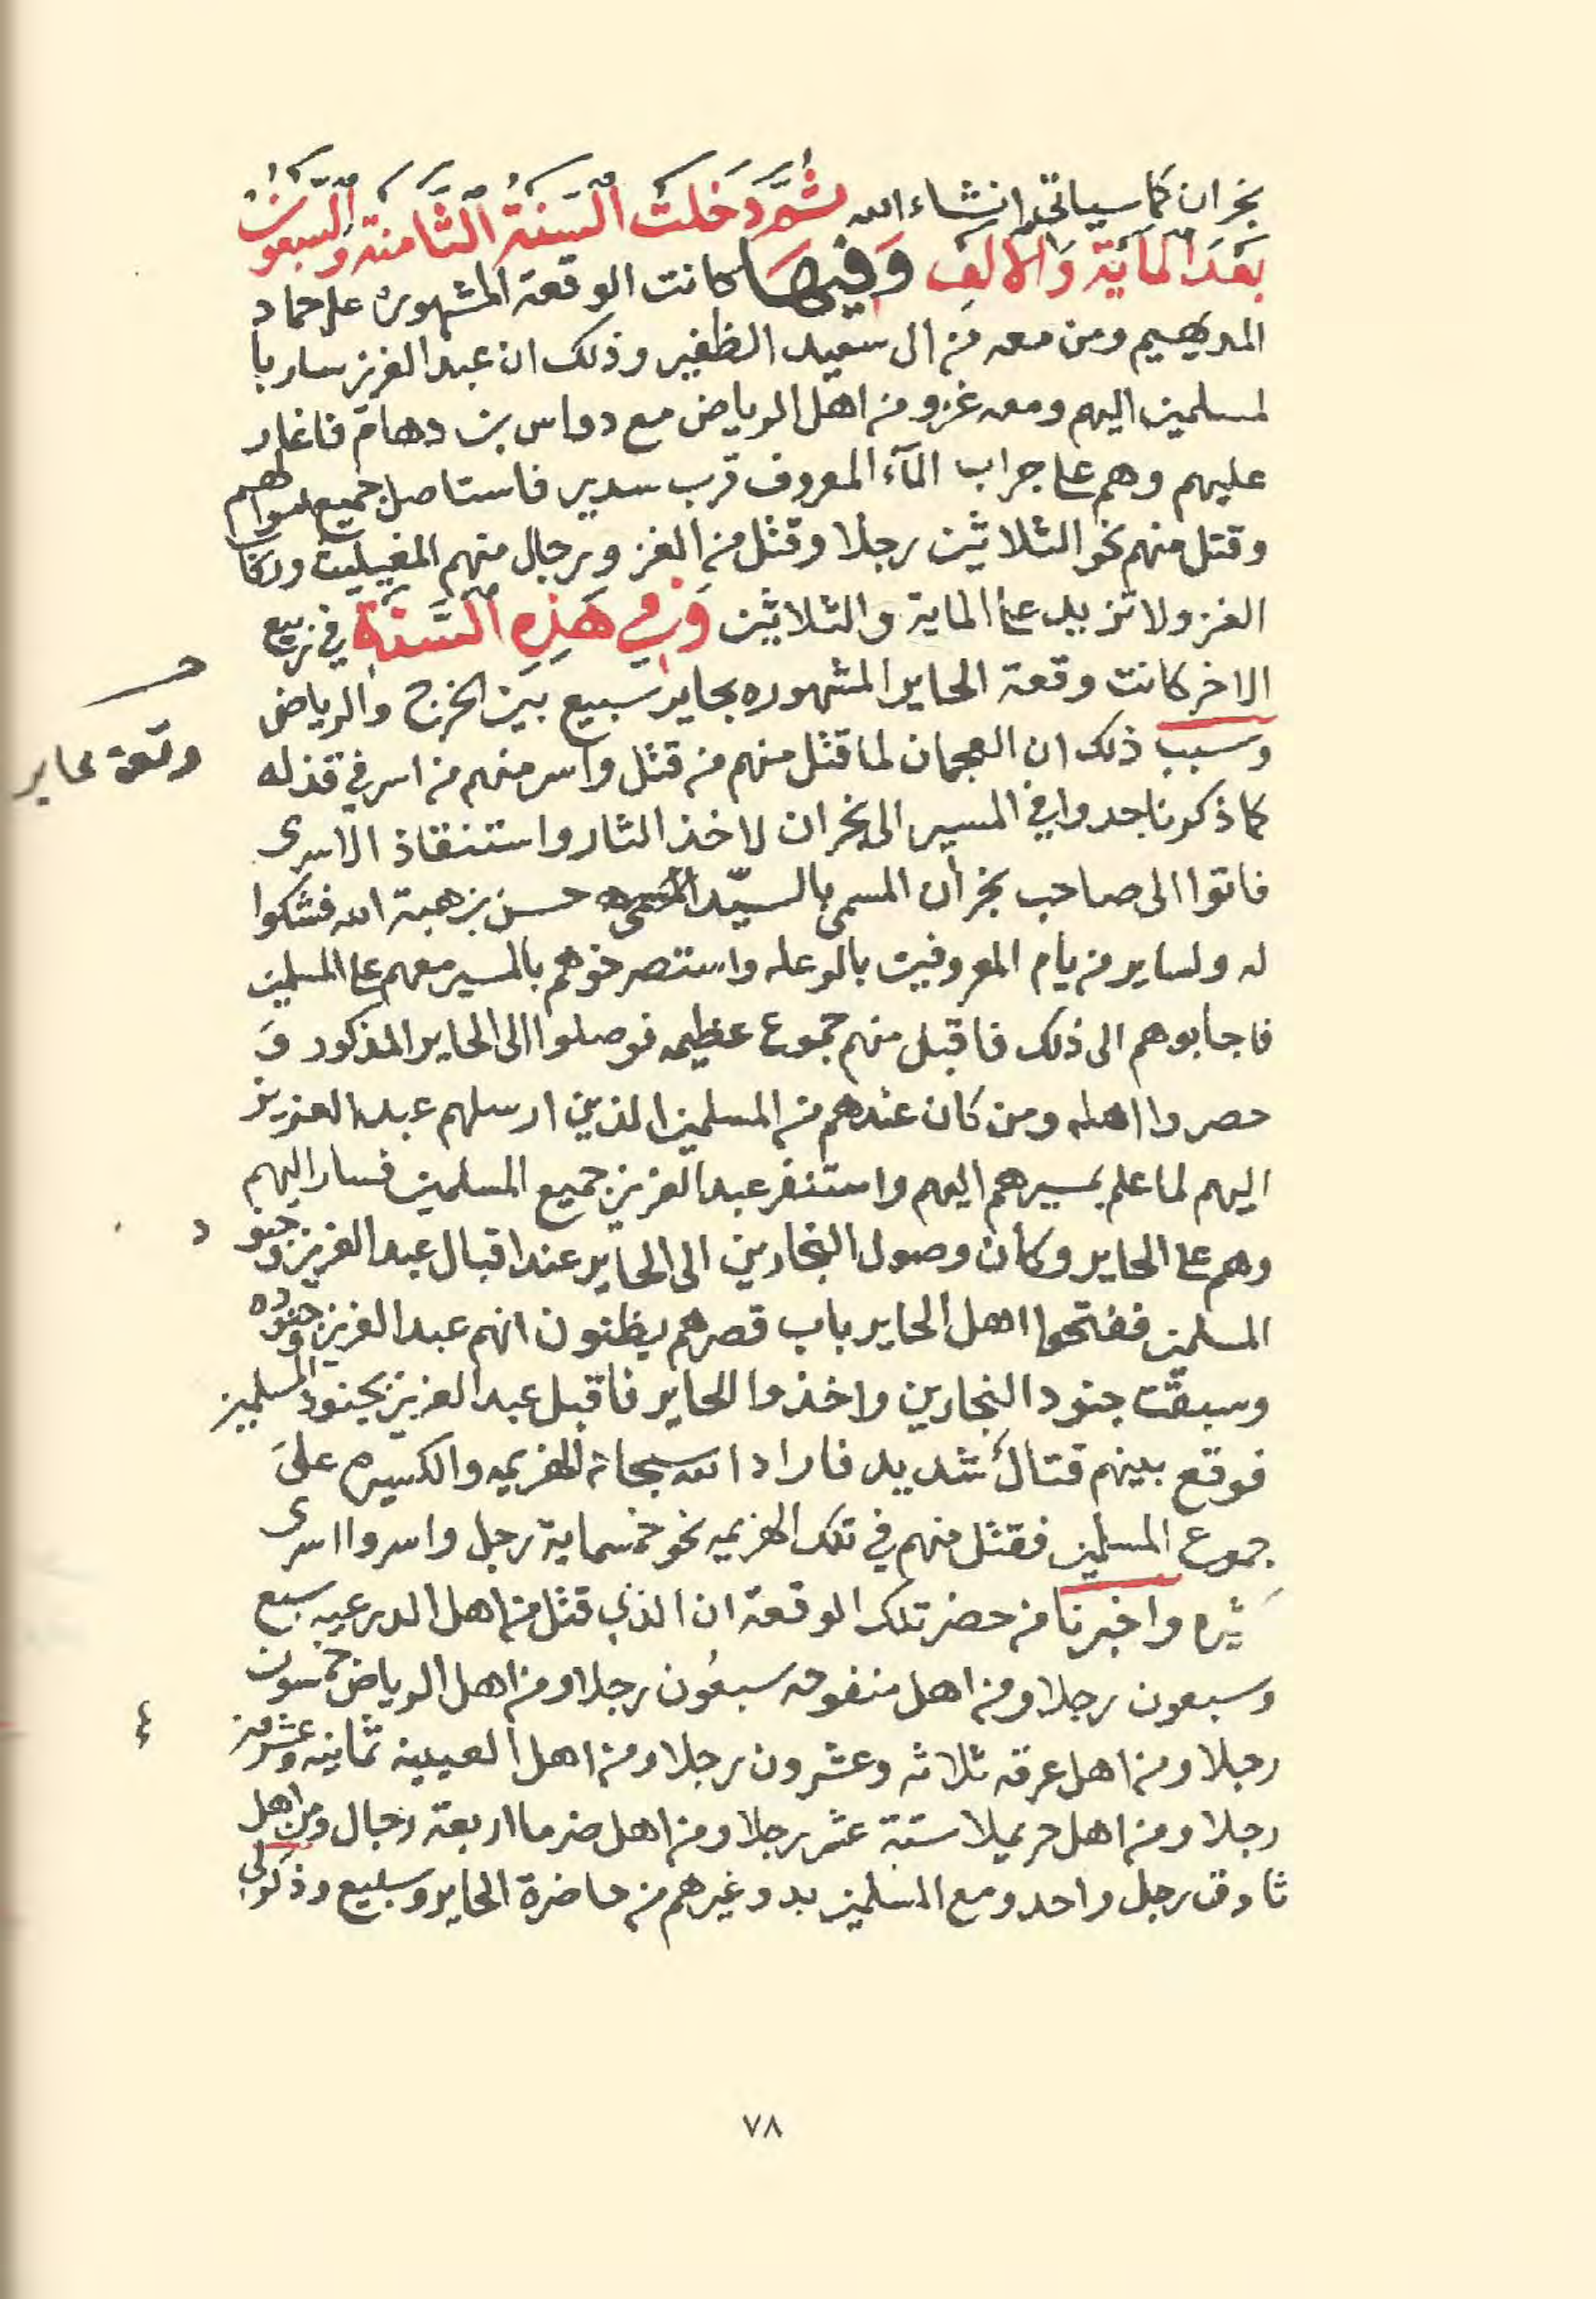 نجران كما سياتي انشاء الله ثم دخلت السنة الثامنة والسبعون
بعد الماية والالف وفيها كانت الوقعة المشهوره على حماد
المديهيم ومن معه من ال سعيد الظفير وذلك ان عبد العزيز سار با
لمسلمين اليهم ومعه غزو من اهل الرياض مع دواس بن دهام فاغار
عليهم وهم على جراب المآء المعروف قرب سدير فاستاصل جميع اموالهم
وقتل منهم نحو الثلاثين رجلا وقتل من الغزو رجال منهم المغيليث وركاب
الغزو لا تزيد على الماية والثلاثين وفي هذه السنة في ربيع
الاخر كانت وقعة الحاير المشهوره بحاير سبيع بين الخرج والرياض
وقعة حاير
وسبب ذلك ان العجمان لما قتل منهم من قتل واسر منهم من اسر في قذله
كما ذكرنا جدوا في المسير الى نجران لاخذ الثار واستنقاذ الاسرى
فاتوا الى صاحب نجران المسمى بالسيّد حسن بن هبة الله فشكوا
له ولساير من يام المعروفين بالوعله واستصرخوهم بالمسير معهم على المسلمين
فاجابوهم الى ذلك فاقبل منهم جموع عظيمه فوصلوا الى الحاير المذكور وَ
حصروا اهله ومن كان عندهم من المسلمين الذين ارسلهم عبد العزيز
اليهم لما علم بمسيرهم اليهم واستنفر عبد العزيز جميع المسلمين فسار اليهم
وهم على الحاير وكان وصول النجارين الى الحاير عند اقبال عبد العزيز وجنود
المسلمين ففتحوا اهل الحاير باب قصرهم يظنون انهم عبد العزيز وجنوده
وسبقت جنود النجارين واخذوا الحاير فاقبل عبد العزيز بجنود المسلمين
فوقع بينهم قتالٌ شديد فاراد الله سبحانه الهزيمه والكسيره علىَ
جموع المسلمين فقتل منهم في تلك الهزيمه نحو خمسماية رجل واسروا اسرى
كثيره واخبرنا من حضر تلك الوقعة ان الذي قتل من اهل الدرعيه سبع
وسبعون رجلا ومن اهل منفوحه سبعُون رجلا ومن اهل الرياض خمسون
رجلا ومن اهل عرقه ثلاثه وعشرون رجلا ومن اهل العيينه ثمانيه وعشرين
رجلا ومن اهل حريملا ستة عشر رجلا ومن اهل ضرما اربعة رجال ومن اهل
ثادق رجل واحد ومع المسلمين بدو وغيرهم من حاضرة الحاير وسبيع وذكر لي
٧٨